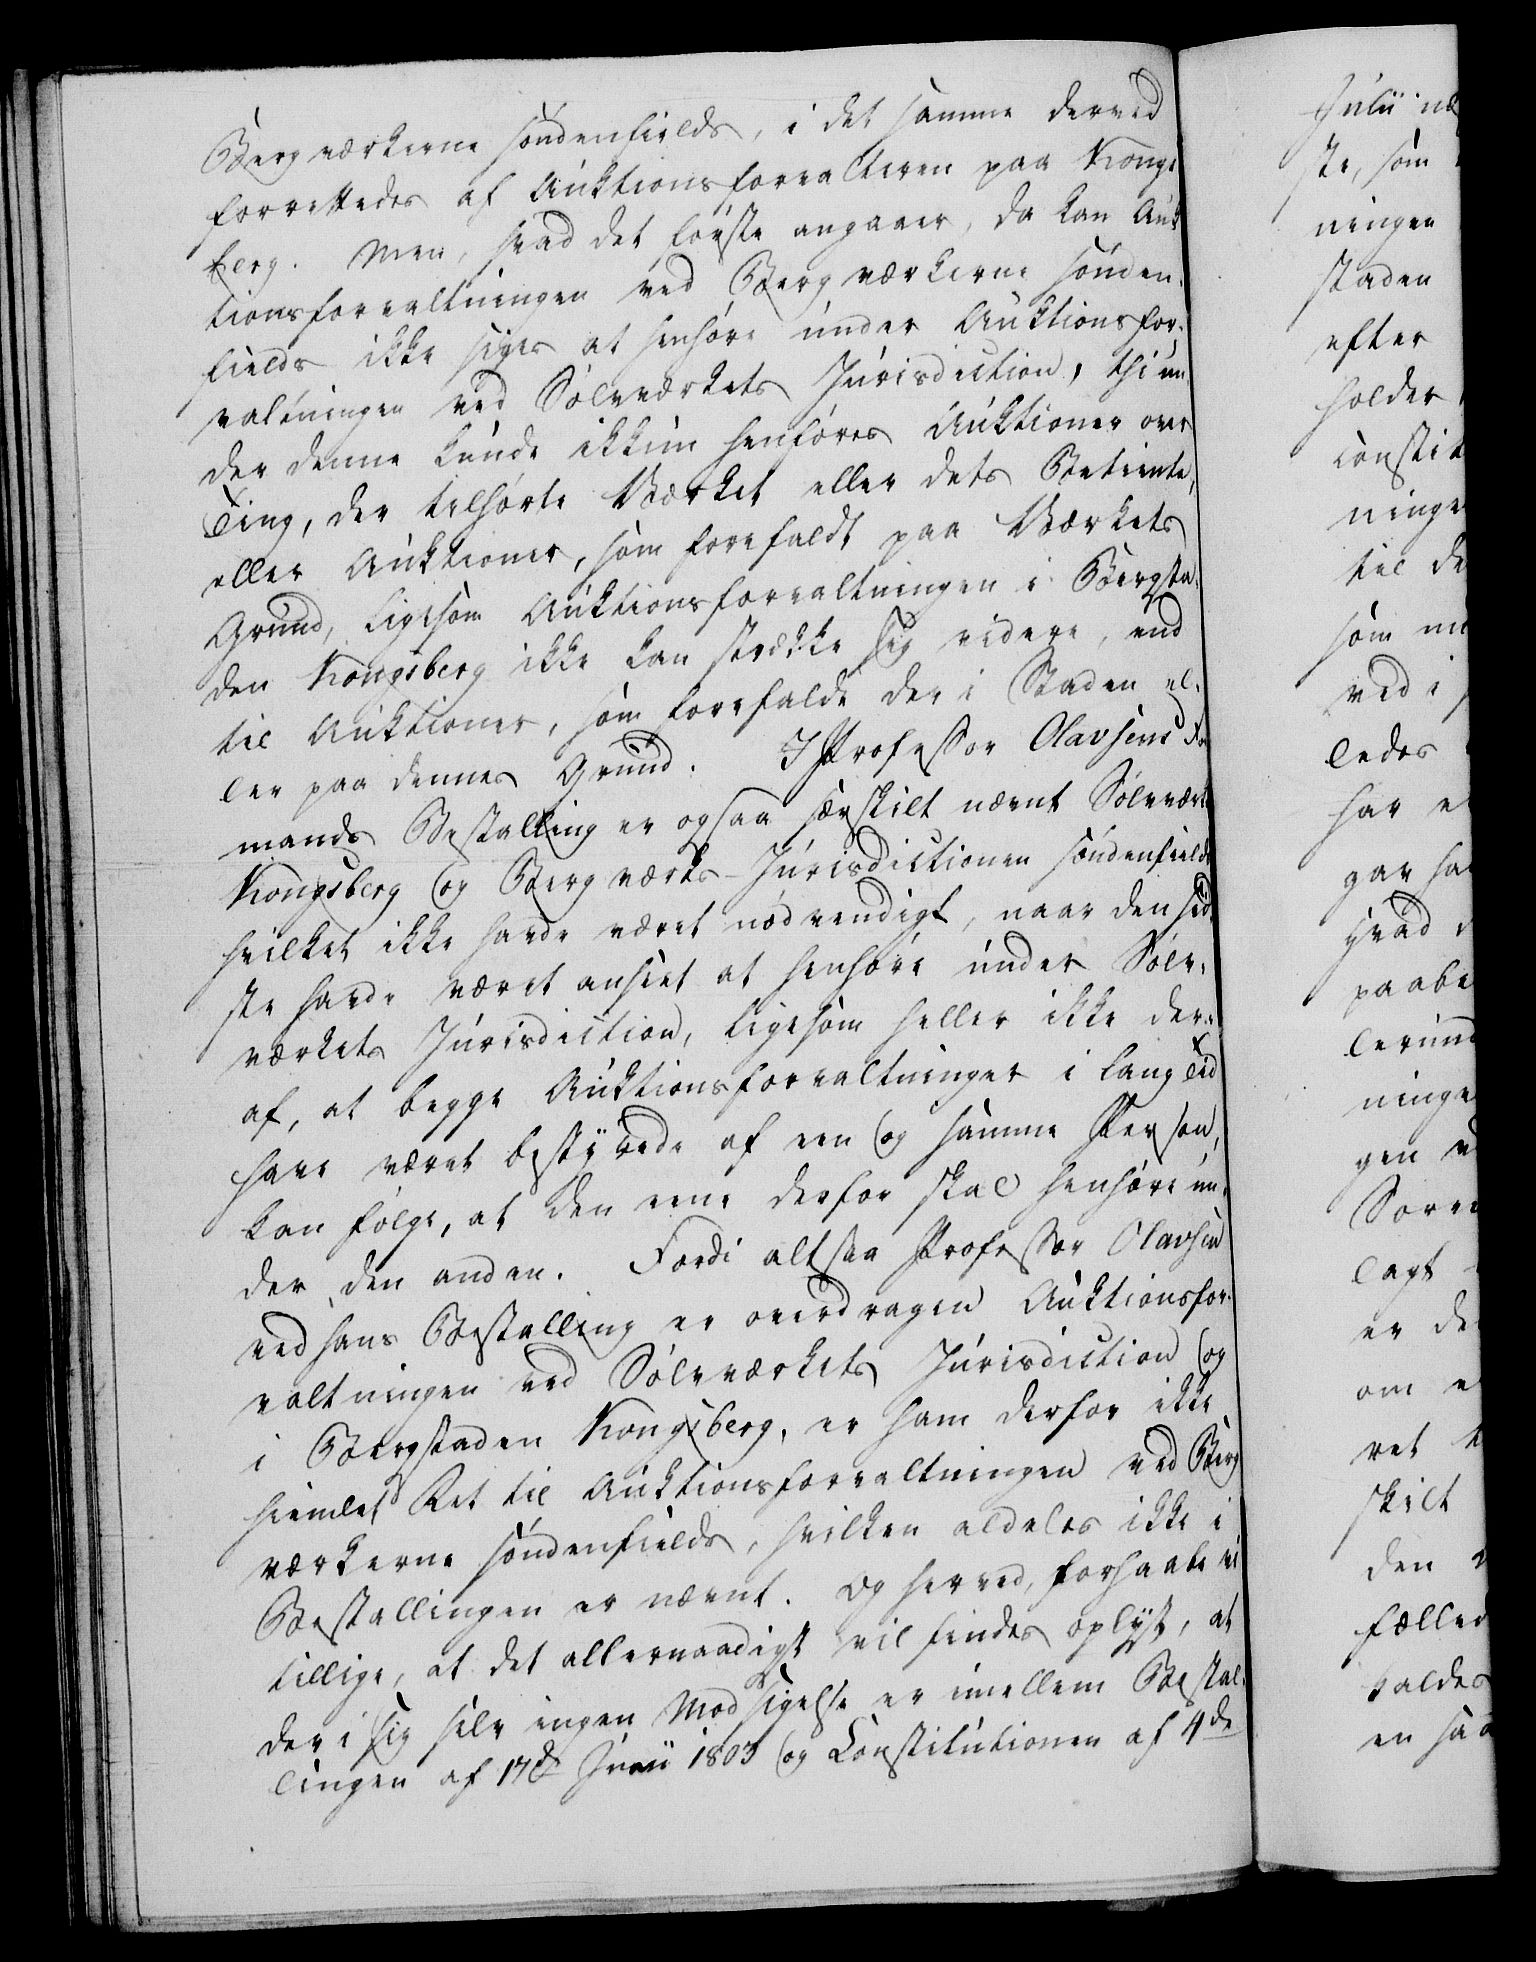 Bergværkerne söndenfields, i det samme derved
forrettedes af Auktionsforvalteren paa Kongs
berg. Men, hvad det förste angaaer, da kan Auk
tionsforvaltningen ved Bergværkerne sönden-
fields ikke siges at henhöre under Auktionsfor-
valtningen ved Sölvværkets Jurisdiction, thi un-
der denne kunde ikkun henföres Auktioner over
Ting, der tilhörte Værket eller dets Betiente,
eller Auktioner, som forefaldt paa Værkets
Grund, ligesom Auktionsforvaltningen i Bergsta-
den Kongsberg ikke kan strække sig videre, end
til Auktioner, som forefaldt der i Staden el-
ler paa dennes Grund. I Professor Olavsens For
mands Bestalling er ogsaa særskilt nævnt Sölvværk
Kongsberg og Bergværks-Jurisdictionen söndenfields
hvilket ikke havde været nödvendigt, naar den sid
ste havde været anseet at henhöre under Sölv-
værkets Jurisdiction, ligesom heller ikke der-
af, at begge Auktionsforvaltninger i lang Tid
have været bestyrede af een og samme Person,
kan fölge, at den eene derfor skal henhöre un-
der den anden. Fordi altsaa Professor Olavsen
ved hans Bestalling er overdragen Auktionsfor-
valtningen ved Sölvværkets Jurisdiction og
i Bergstaden Kongsberg, er ham derfor ikke
hiemlet Ret til Auktionsforvaltningen ved Berg
værkerne söndenfields, hvilken aldeles ikke i
Bestallingen er nævnt. Og herved, forhaabe vi
tillige, at det allernaadigst vil findes oplyst, at
der i sig selv ingen Modsigelse er imellem Bestal-
lingen af 17de Junii 1803 og Constitutionen af 4de
Julii næ
ste, som
ningen
staden
efter
holder
constit
ninge
til de
som m
ved i
ledes
har e
gav ha
hvad
paabe
lerund
ninge
gen v
Soren
lagt
er de
om e
ret
skilt
den
fælled
kaldes
en saa